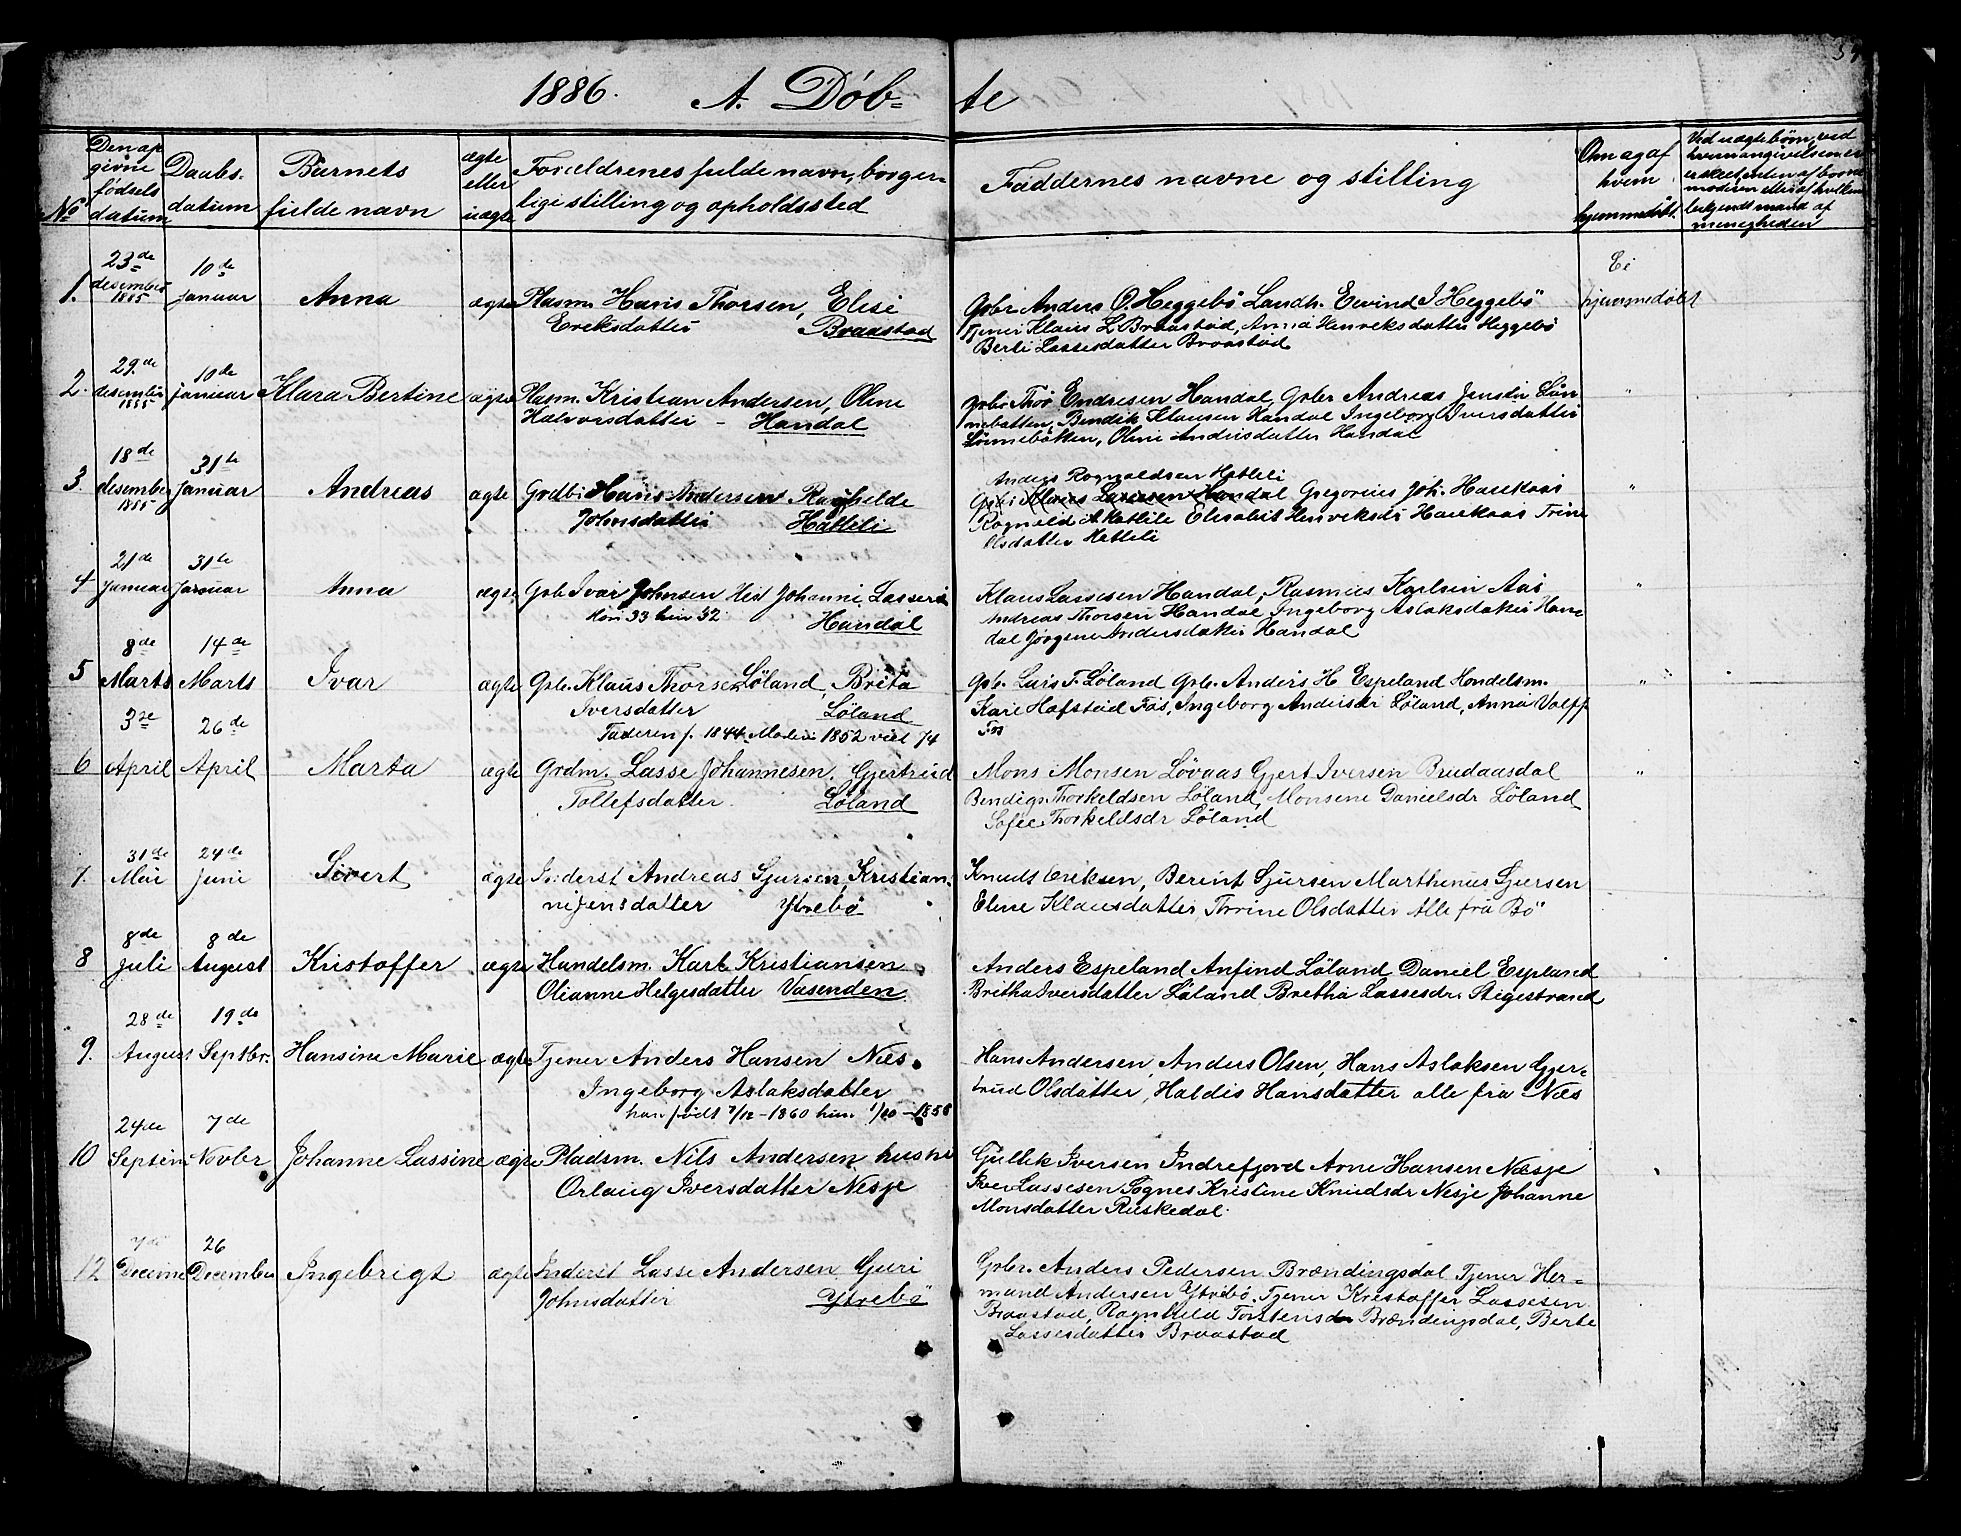 1886. A. Döb- te
No
Den op
givne
fødsels
datum
Daabs-
datum
Barnets
fulde navn
ægte
eller
uægte
Forældrenes fulde navn, borger-
lige stilling og opholdssted
Faddernes navne og stilling
Om og af
hvem
hjemmedøbt.
Ved uægte børn, ved
meenigheden
1. 23de desember 1885 10de Januar Anna ægte Plasm. Hans Thorsen, Elisi
Ereksdatter Braastad
Gsbr Anders O. Heggebö Landh. Eevind I Heggebö
Tjener Klaus L Braastad, Anna Henreksdatter Heggebö
Berti Lassesdatter Braastad
Ei
hjemmedøbt
2. 29de desember 1885 10de Januar Klara Bertine ægte Plasm. Kristian Andersen, Oline
Halvorsdatter - Handal
gsbr Thor Endresen Handal, Gsbr Andreas Jensen Lön-
nebatten, Bendik Klausen Handal Ingeborg Iversdatter
Lönnebotten, Oline Andrisdatter Handal
"
3. 18de desember 1885 31te Januar Andreas ægte Grdbr Hans Andersen Raghelde
Johnsdatter Hatleli
Anders Rognaldsen Hatleli
Gsbr Klaus Lassesen Handal Gregorius Joh. Harekaas
Rognald A Hatlile Elisabet Henreksdr Harekaas Trine
Olsdatter Hatleli
"
4 21de Januar 31te Januar Anna ægte Gsb Ivar Johnsen Johanne Lassesd
Han 33 hun 32 Handal
Klaus Lassesen Handal, Rasmus Karlsen Aas
Andreas Thorsen Handal Ingeborg Aslaksdatter Han-
dal Jörgine Andersdatter Handal
"
5 8de Marts 14de Marts Ivar ægte Gsb. Klaus Thorsen Löland, Brita
Iversdatter Löland
Faderen f. 1844. Moder 1852 viet 74
Gsb. Lars T. Löland Gsb. Anders H Espeland Handelsm.
Karl Hafstad Fös, Ingeborg Andersdr Löland, Anna Volff
Fös
"
6 3de April 26de April Marta ægte Grdm. Lasse Johannesen. Gjertrud
Tollefsdatter. Löland
Mons Monsen Lövaas Gjert Iversen Brudaasdal
Bendigs Thorkeldsen Löland, Monsene Danielsdr Löland
Sofie Thorkeldsdr Löland
"
7. 31de Mai 24de Juni Sivert ægte Inderst Andreas Sjursen, Kristian-
ne Jensdatter Ytrebö
Knuds Eriksen, Berint Sjursen Marthenus Sjursen
Eline Klausdatter, Thrine Olsdatter Alle fra Bö
8 8de Juli 8de August Kristoffer ægte Handelsm. Karl Kristiansen
Olianne Helgesdatter Vasenden
Anders Espeland Anfind Löland Daniel Espeland
Britha Iversdatter Löland Bretha Lassesdr. Stigestrand
9. 28de August 19de Septbr. Hansine Marie ægte Tjener Anders Hansen Næs
Ingeborg Aslaksdatter
han født 7/12 - 1860 hun 1/10 - 1858
Hans Andersen, Anders Olsen, Hans Aslaksen Gjer-
trud Olsdatter, Haldis Hansdatter alle fra Næs
10 24de Septem 7de Novbr Johanne Lassine ægte Pladsm. Nils Andersen hustru
Orlaug Iversdatter Nesje
Gullik Iversen Indrefjord Arne Hansen Næsje
Iver Lassesen Sögnes Kristine Knudsdr Nesje Johanne
Monsdatter Ruskedal.
12 7de Decemb 26 December Ingebrigt ægte Inderst Lasse Andersen Guri
Johnsdatter Ytrebö
Gsbr. Anders Pedersen Brændingsdal Tjener Her-
mand Andersen Ytrebö. Tjener Kristoffer Lassesen
Braastad, Ragnhild Torstensdr Brændingsdal, Berte
Lassesdatter Braastad